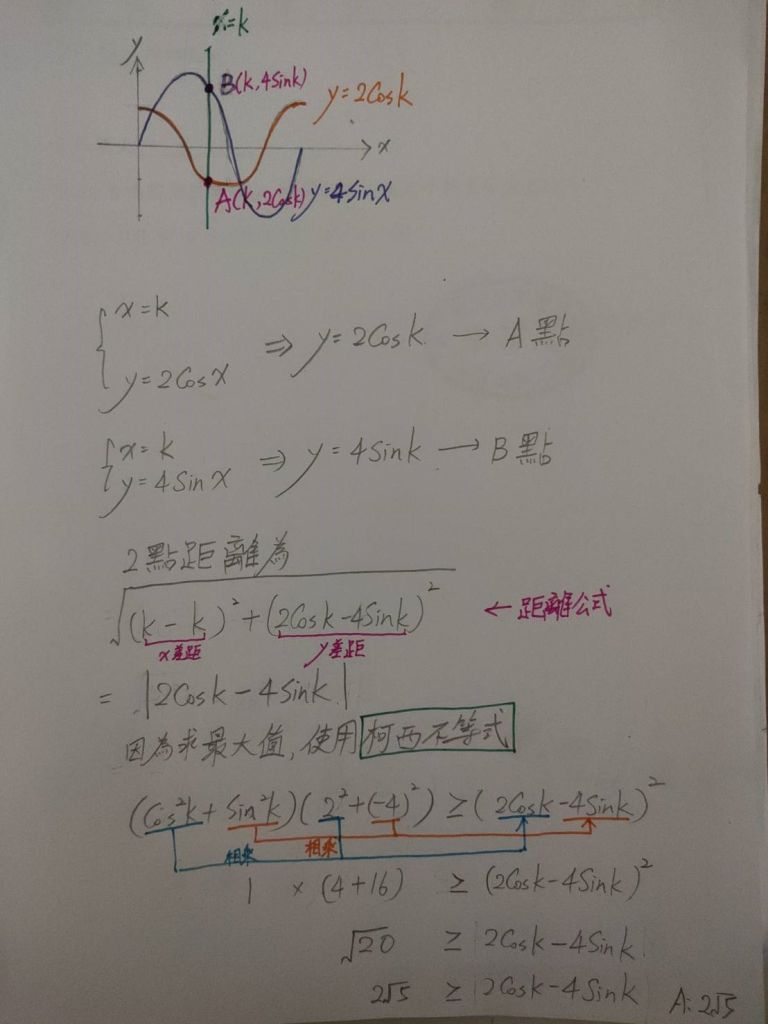 x=k
y
B(k,4Sink)
y=2Cosk
x
A(k,2Cosk)
y=4Sinx
{x=k
y=2Cosx ⇒ y=2Cosk → A點
{x=k
y=4Sinx ⇒ y=4Sink → B點
2點距離為
√(k-k)²+(2Cosk-4Sink)² ← 距離公式
x差距 y差距
= |2Cosk-4Sink|
因為求最大值,使用柯西不等式
(Cos²k+Sin²k)(2²+(-4)²) ≥ (2Cosk-4Sink)²
相乘 相乘
1 × (4+16) ≥ (2Cosk-4Sink)²
√20 ≥ |2Cosk-4Sink|
2√5 ≥ |2Cosk-4Sink| A:2√5